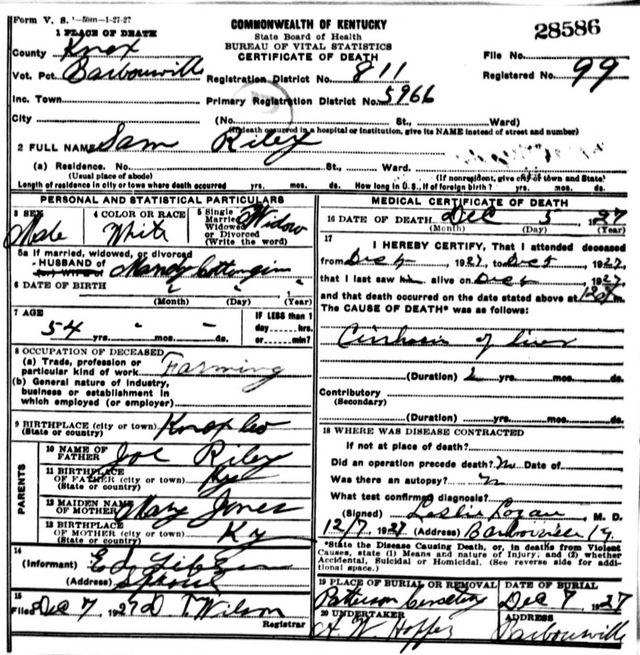 Form V. S. 1-50m-1-27-27
COMMONWEALTH OF KENTUCKY
State Board of Health
BUREAU OF VITAL STATISTICS
CERTIFICATE OF DEATH
28586
1 PLACE OF DEATH
County Knox
Vot. Pct. Barbourville
Registration District No. 811
File No.
Registered No. 99
Inc. Town
Primary Registration District No. 5966
City (No. St., Ward)
(If death occurred in a hospital or institution, give its NAME instead of street and number)
2 FULL NAME Sam Riley
(a) Residence. No. St., Ward.
(Usual place of abode) (If nonresident, give city of town and State)
Length of residence in city or town where death occurred yrs. mos. ds. How long in U. S., if of foreign birth? yrs. mos. ds.
PERSONAL AND STATISTICAL PARTICULARS
3 SEX Male
4 COLOR OR RACE White
5 Single Married Widowed or Divorced (Write the word) Widow
5a If married, widowed, or divorced
HUSBAND of
(or) WIFE of Mandy
6 DATE OF BIRTH
(Month) (Day) (Year)
7 AGE 54 yrs. " mos. " ds.
IF LESS than 1 day hrs. or min?
8 OCCUPATION OF DECEASED
(a) Trade, profession or particular kind of work Farming
(b) General nature of industry, business or establishment in which employed (or employer)
9 BIRTHPLACE (city or town) Knox Co
(State or country)
PARENTS
10 NAME OF FATHER Joe Riley
11 BIRTHPLACE OF FATHER (city or town) Ky
(State or country)
12 MAIDEN NAME OF MOTHER Mary Jones
13 BIRTHPLACE OF MOTHER (city or town) Ky
(State or country)
14
(Informant) Ed
(Address)
15
Filed Dec 7, 1927 D T Wilson
Registrar
MEDICAL CERTIFICATE OF DEATH
16 DATE OF DEATH Dec 5 1927
(Month) (Day) (Year)
17
I HEREBY CERTIFY, That I attended deceased
from Dec 4, 1927, to Dec 5, 1927,
that I last saw him alive on Dec 5, 1927,
and that death occurred on the date stated above at m.
The CAUSE OF DEATH* was as follows:
Cirrhosis of liver
(Duration) 2 yrs. mos. ds.
Contributory
(Secondary)
(Duration) yrs. mos. ds.
18 WHERE WAS DISEASE CONTRACTED
If not at place of death?
Did an operation precede death? No Date of
Was there an autopsy? No
What test confirmed diagnosis?
(Signed) Leslie Logan, M. D.
12/7, 1927 (Address) Barbourville Ky.
*State the Disease Causing Death, or, in deaths from Violent
Causes, state (1) Means and nature of Injury; and (2) whether
Accidental, Suicidal or Homicidal. (See reverse side for additional space.)
19 PLACE OF BURIAL OR REMOVAL Patterson Cemetery
DATE OF BURIAL Dec 7 1927
20 UNDERTAKER
ADDRESS Barbourville